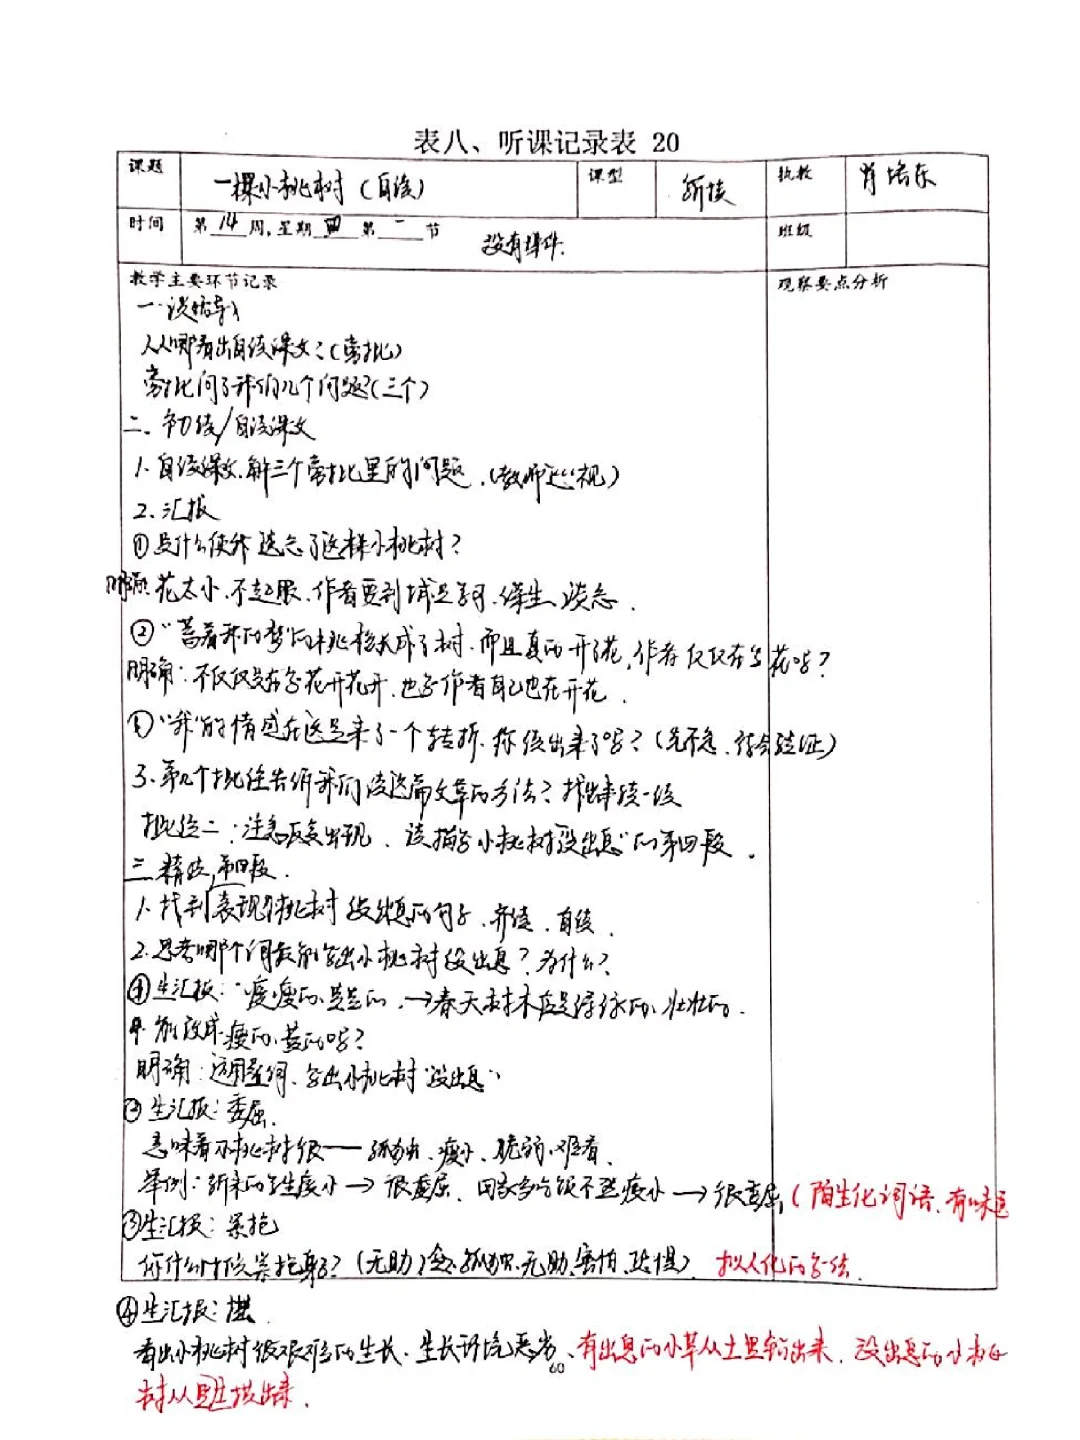 表八、听课记录表 20
课题 一棵小桃树（自读） 课型 新授 执教 肖培东
时间 第 14 周，星期 四 第 一 节 没有课件. 班级
教学主要环节记录 观察要点分析
一.谈话导入
1.从哪看出自读课文？（旁批）
旁批问了我们几个问题？（三个）
二、初读/自读课文
1.自读课文.解三个旁批里的问题.（教师巡视）
2.汇报
①是什么使我遗忘了这棵小桃树？
明确：花太小.不起眼.作者要到城里学习.谋生、淡忘.
②“蓄着我的梦”的桃核长成了树.而且真的开了花，作者仅仅在写花吗？
明确：不仅仅是在写花开花开.也写作者自己也在开花.
③“我”的情感在这里来了一个转折.你读出来了吗？（先不急、待会验证）
3.第几个批注告诉我们读这篇文章的方法？找出来读一读
批注二：注意反复出现.该描写小桃树“没出息”的第四段.
三.精读,第四段.
1.找到表现小桃树没出息的句子.齐读.自读.
2.思考哪个词最能写出小桃树没出息？为什么？
①生汇报：“瘦瘦的.黄黄的.→春天树木应是绿绿的.壮壮的.
能改成瘦的.黄的吗？
明确：运用叠词、写出小桃树“没出息”
②生汇报：委屈.
意味着小桃树很——孤独、瘦小、脆弱、难看.
举例：新来的学生瘦小→很委屈.回家多吃饭不造瘦小→很委屈（陌生化词语、有味道
③生汇报：紧抱
你什么时候紧抱身子？（无助 孤独、无助、害怕、恐惧） 拟人化的写法.
④生汇报：拱
看出小桃树很艰难的生长.生长环境恶劣、有出息的小草从土里钻出来.没出息的小桃
树从土里拱出来.
60